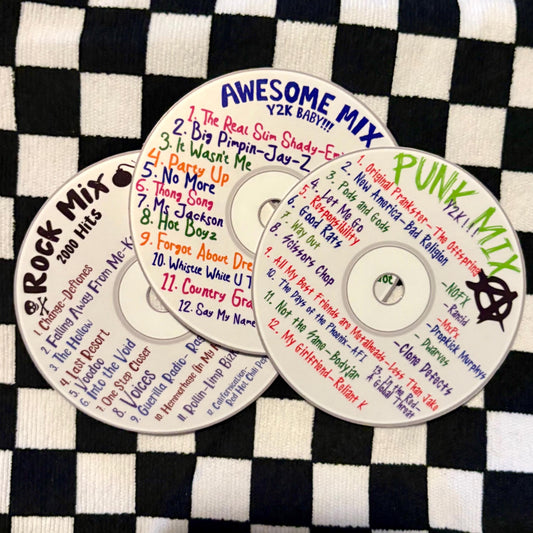 AWESOME MIX
Y2K BABY!!!
1. The Real Slim Shady-Em
2. Big Pimpin-Jay-Z
3. It Wasn't Me
4. Party Up
5. No More
6. Thong Song
7. Ms Jackson
8. Hot Boyz
9. Forgot About Dre
10. Whistle While U T
11. Country Gra
12. Say My Name
PUNK MIX
Y2K!!
1. Original Prankster-The Offspring
2. New America-Bad Religion
3. Pods and Gods
4. Let Me Go
5. Responsibility
6. Good Rats
7. Way Out
8. Scissors Chop
9. All My Best Friends are Metalheads-Less Than Jake
10. The Days of the Phoenix-AFI
11. Not the Same-Bodyjar
12. My Girlfriend-Relient K
-NOFX
-Rancid
-MxPx
-Dropkick Murphys
-Dwarves
-Clone Defects
In the Red
Global Threat
ROCK MIX
2000 HITS
1. Change-Deftones
2. Falling Away From Me-K
3. The Hollow
4. Last Resort
5. Voodoo
6. Into the Void
7. One Step Closer
8. Voices
9. Guerilla Radio-Ra
10. Hemorrhage (In My
11. Rollin-Limp Biz
12. Californication-
Red Hot Chili Pep